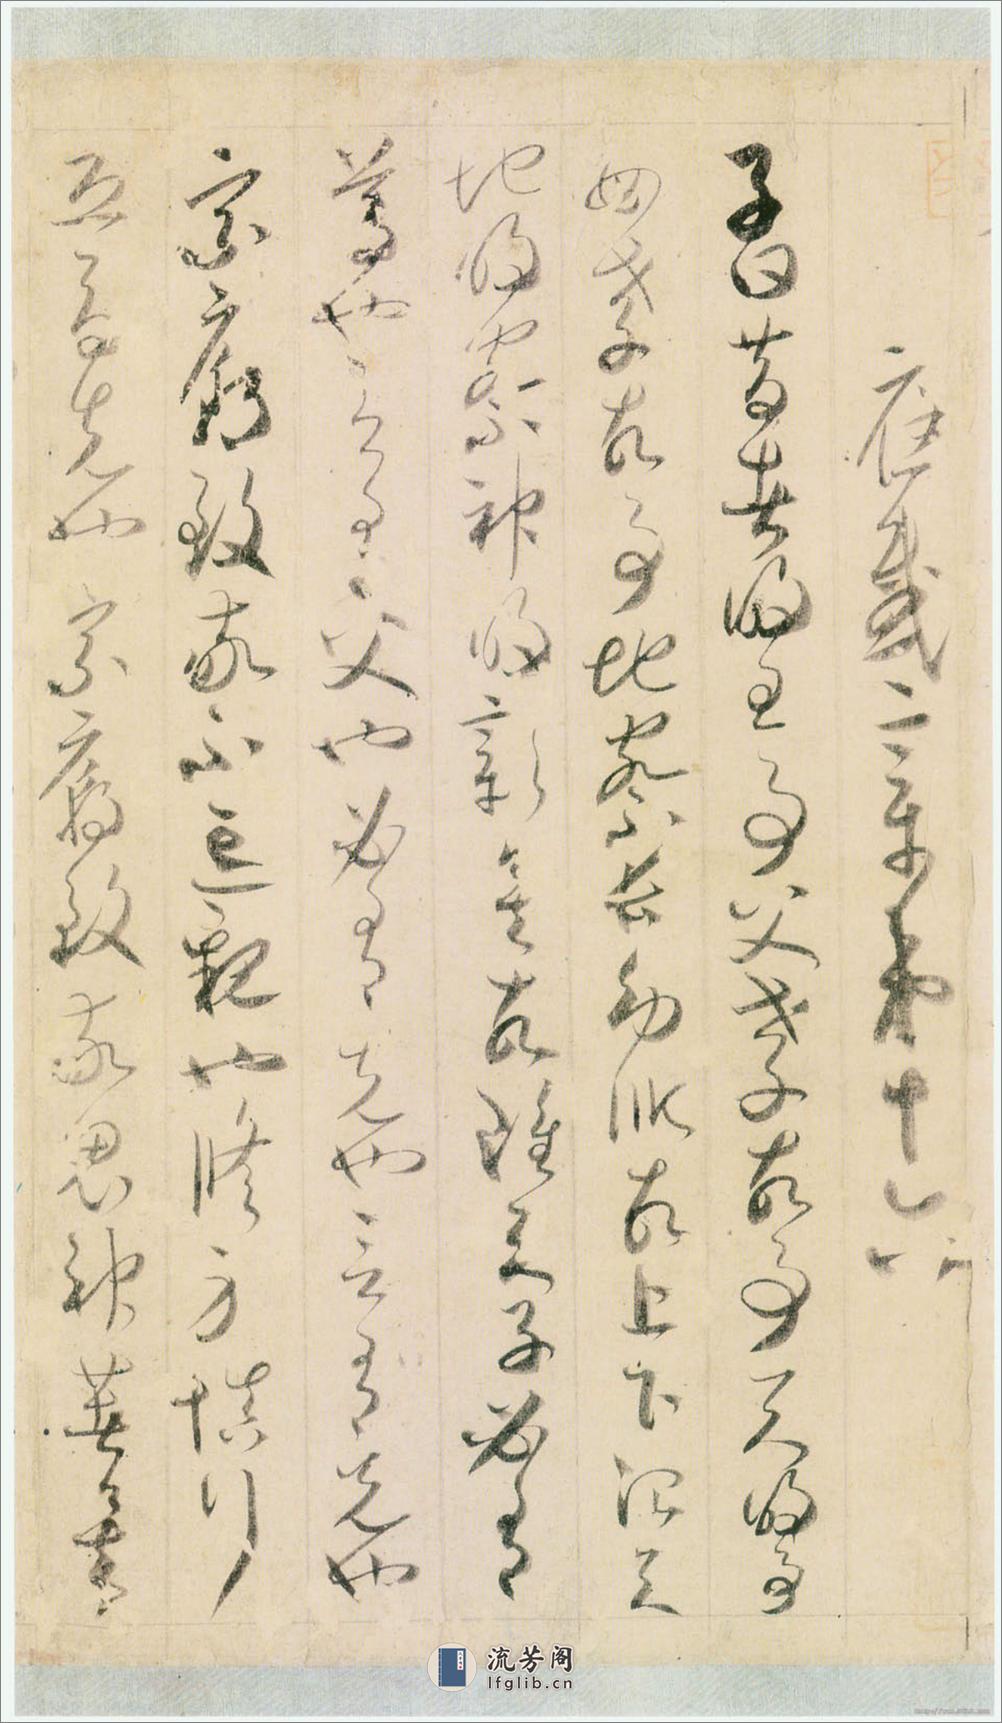 應感章第十六
子曰昔者明王事父孝故事天明事
母孝故事地察長幼順故上下治天
地明察神明彰矣故雖天子必有
尊也言有父也必有先也言有兄也
宗廟致敬不忘親也脩身慎行
恐辱先也宗廟致敬鬼神著矣孝
流芳阁
lfglib.cn